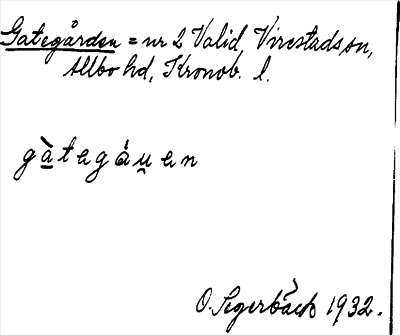 Gategården = nr 2 Valid, Virestads sn,
Allbo hd, Kronob. l.
gàtegáu̯en
O. Segerbäck 1932.